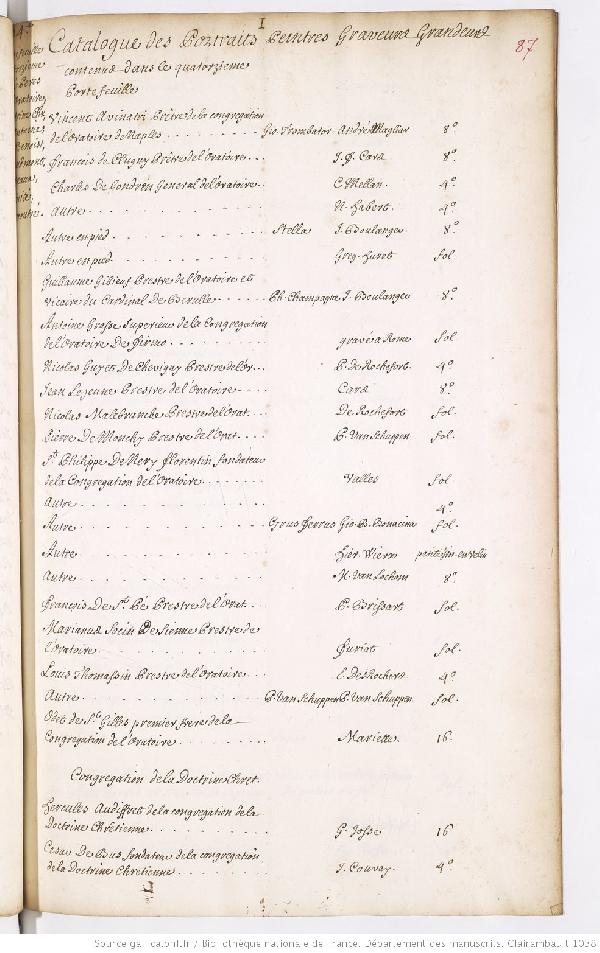 I
87
Catalogue des Portraits Peintres Graveurs Grandeurs
contenus dans le quatorzieme
Portefeuille
Vincent Avinatri Prêtre de la congregation
de l'Oratoire de Naples . . . . . . . . Gio. Trombator André Magliar 8°
François de Clugny Prêtre de l'Oratoire . . . J. F. Cars 8°
Charles De Condren General de l'oratoire . . C. Mellan 4°
Autre . . . . . . . . . . . N. Habert 4°
Autre en pied . . . . . . . . Stella J. Boulanger 8°
Autre en pied . . . . . . . . Greg. Huret fol
Guillaume Gibieuf Prestre de l'Oratoire et
vicaire du Cardinal De Berulle . . . . . Ph. Champagne J. Boulanger 8°
Antoine Grosse Superieur de la Congregation
de l'Oratoire De Firmo . . . . . . . gravé a Rome fol
Nicolas Guyet De Chevigny Prestre de l'Or . . . P. de Rochefort 4°
Jean Lejeune Prestre de l'Oratoire . . . Cars 8°
Nicolas Malebranche Prestre de l'Orat . . . De Rochefort fol.
Pierre De Monchy Prestre de l'Orat . . . P. Van Schuppen fol.
St. Philippe De Nery florentin fondateur
de la Congregation de l'Oratoire . . . . . Valles fol
Autre . . . . . . . . . . . 4°
Autre . . . . . . . . . . . Cyrus Ferrus Gio. B. Bonacina fol.
Autre . . . . . . . . . . . Hier. Wierx petit in velin
Autre . . . . . . . . . . . M. Van Lochom 8°
François De St. Pé Prestre de l'Orat . . P. Brissart fol.
Marianus Socin De Sienne Prestre de
l'Oratoire . . . . . . . . . . fol.
Louis Thomassin Prestre de l'Oratoire . . . E. Desrochers 4°
Autre . . . . . . . . . . . P. Van Schuppen P. Van Schuppen fol.
Odet de St. Gilles premier frere de la
Congregation de l'Oratoire . . . . . . . Mariette 16.
Congregation de la Doctrine Chret.
Hercules Audiffret de la congregation de la
Doctrine Chrêtienne . . . . . . . . G. Josse 16
Cesar De Bus fondateur de la congregation
de la Doctrine Chretienne . . . . . . . J. Couvay. 4°
Source gallica.bnf.fr / Bibliothèque nationale de France. Département des manuscrits. Clairambault 1038